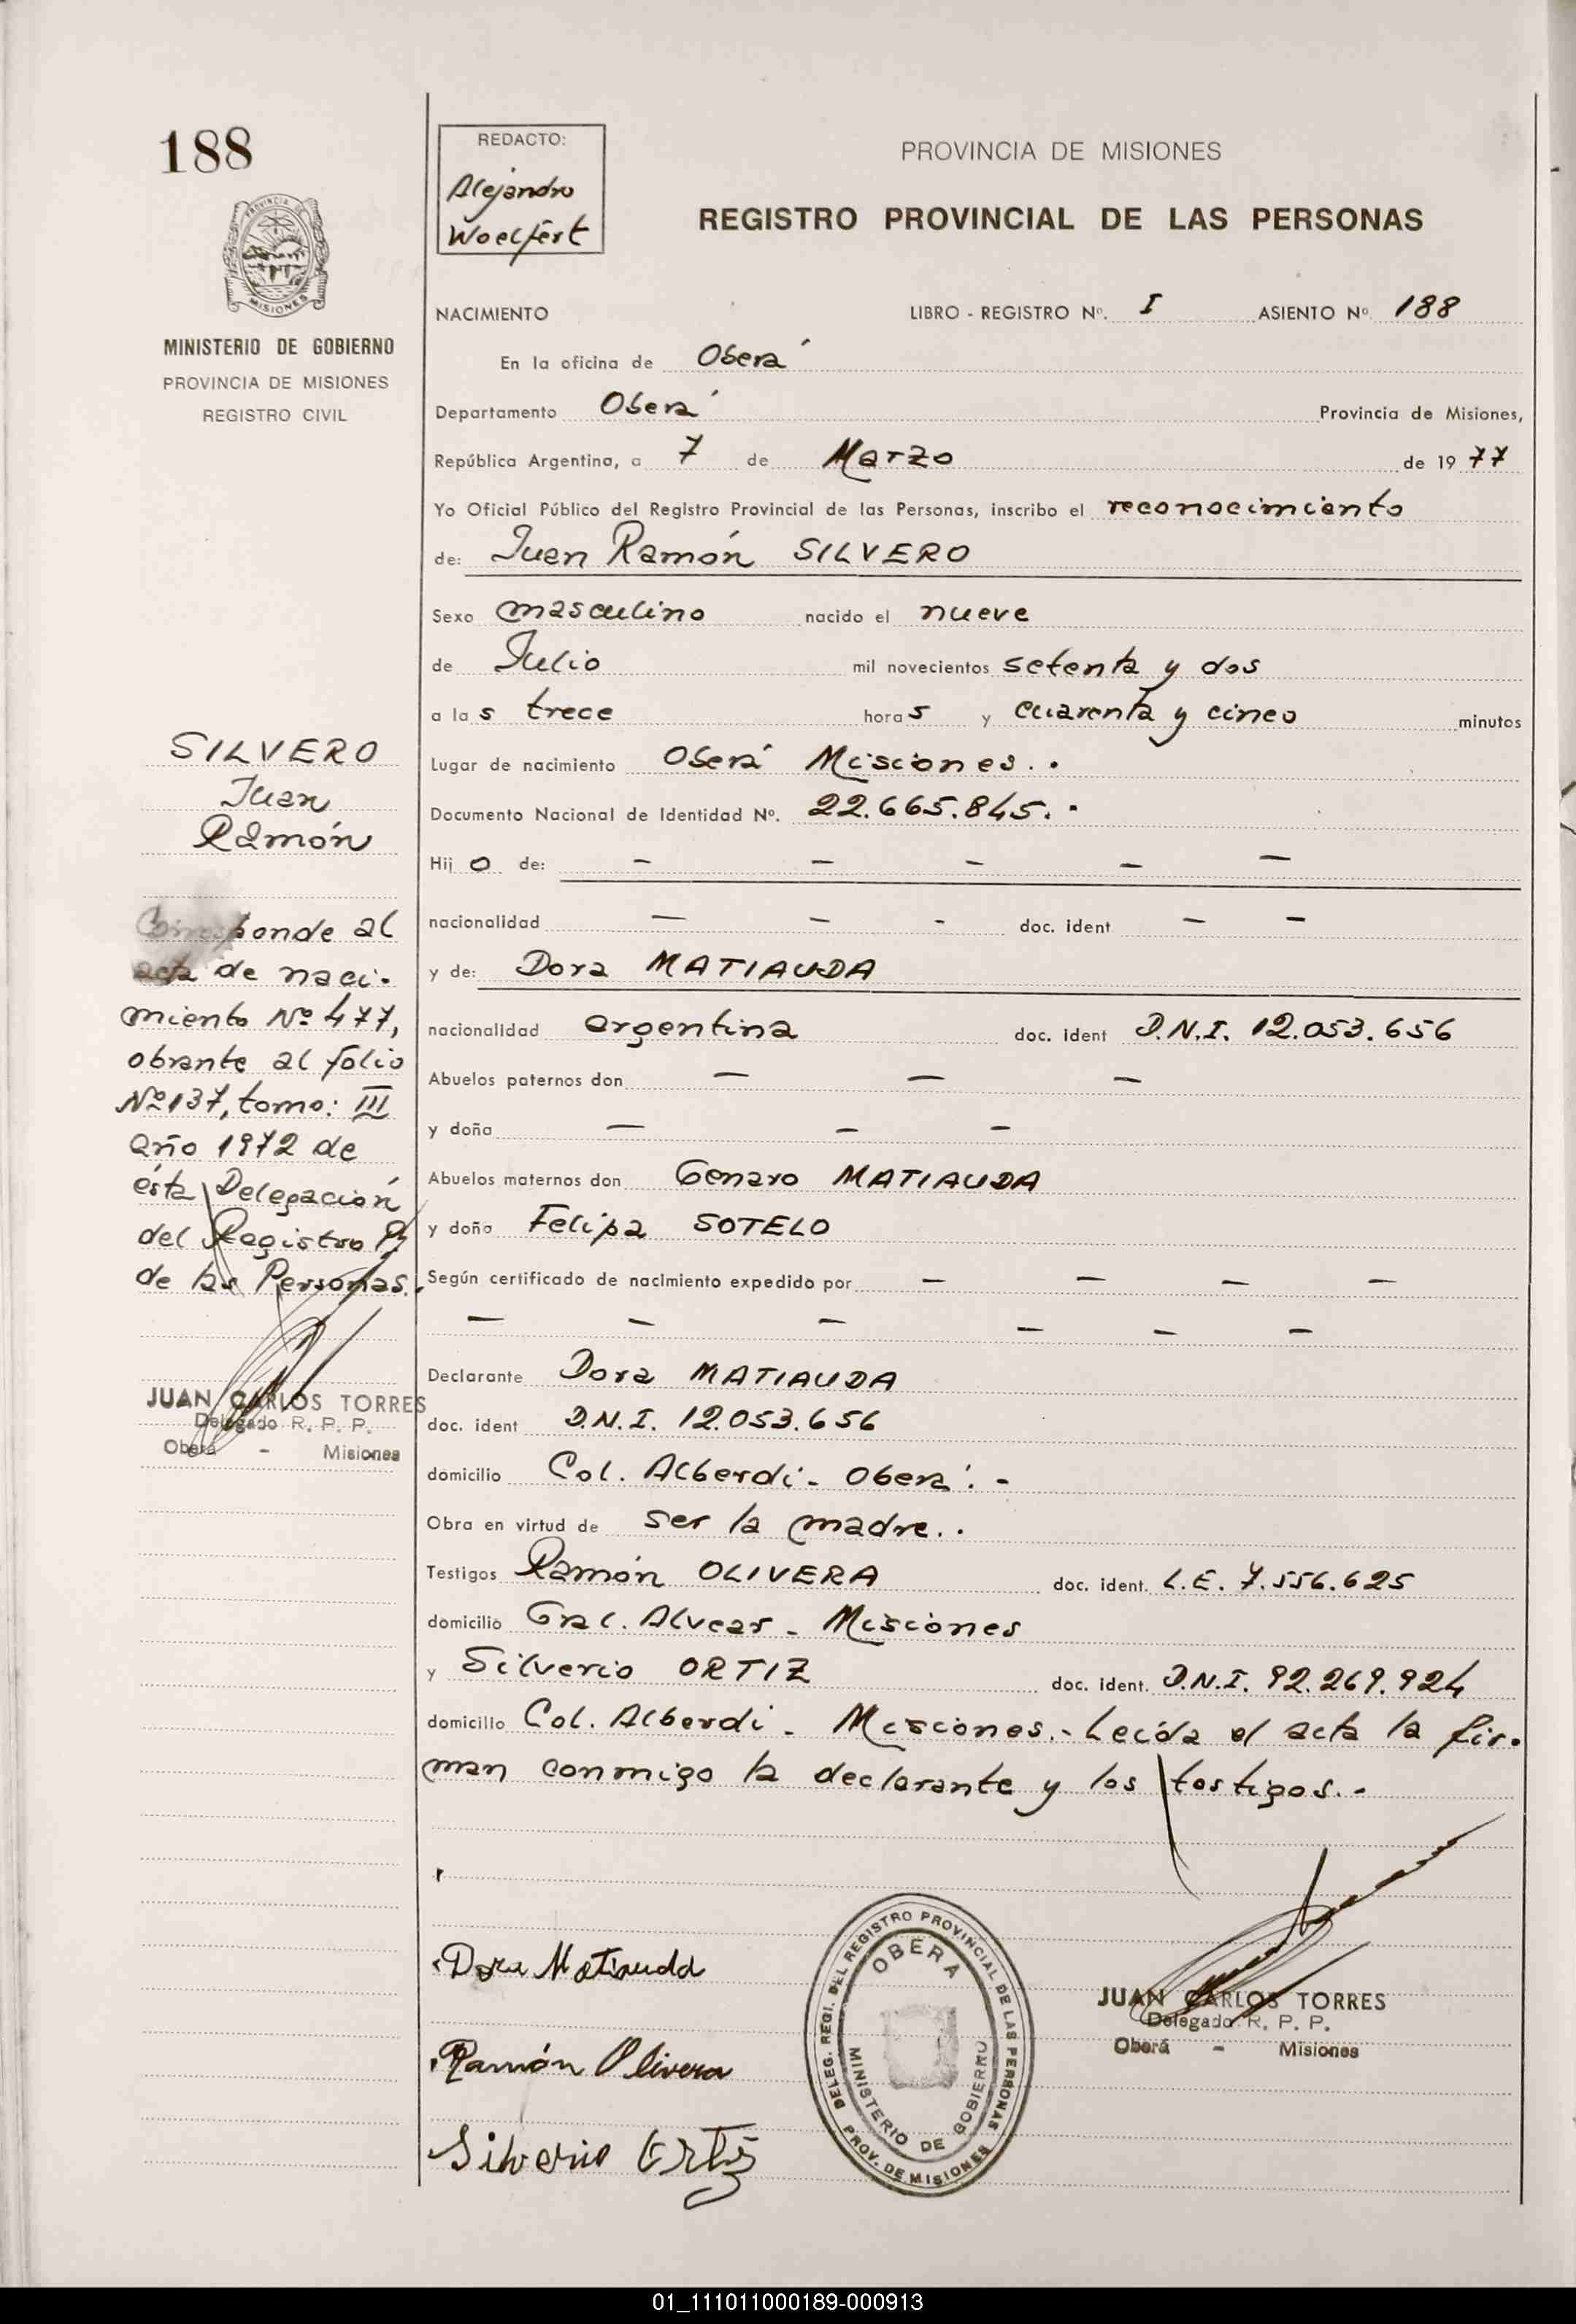 188
REDACTO:
Alejandro
Woelfert
PROVINCIA DE MISIONES
REGISTRO PROVINCIAL DE LAS PERSONAS
PROVINCIA DE
MISIONES
MINISTERIO DE GOBIERNO
PROVINCIA DE MISIONES
REGISTRO CIVIL
NACIMIENTO LIBRO - REGISTRO Nº. I ASIENTO Nº 188
En la oficina de Oberá
Departamento Oberá Provincia de Misiones,
República Argentina, a 7 de Marzo de 1977
Yo Oficial Público del Registro Provincial de las Personas, inscribo el reconocimiento
de: Juan Ramón SILVERO
Sexo masculino nacido el nueve
de Julio mil novecientos setenta y dos
a las trece horas y cuarenta y cinco minutos
Lugar de nacimiento Oberá Misiones. .
Documento Nacional de Identidad Nº. 22.665.845. -
Hijo de: – – – – –
nacionalidad – – - doc. ident – –
y de: Dora MATIAUDA
nacionalidad argentina doc. ident D.N.I. 12.053.656
Abuelos paternos don – – –
y doña – – –
Abuelos maternos don Genaro MATIAUDA
y doña Felipa SOTELO
Según certificado de nacimiento expedido por – – – –
– – – – – –
Declarante Dora MATIAUDA
doc. ident D.N.I. 12.053.656
domicilio Col. Alberdi - Oberá. -
Obra en virtud de ser la madre. .
Testigos Ramón OLIVERA doc. ident. L.E. 7.556.625
domicilio Gral. Alvear - Misiones
y Silverio ORTIZ doc. ident. D.N.I. 92.269.924
domicilio Col. Alberdi - Misiones.- Leída el acta la fir-
man conmigo la declarante y los testigos. -
SILVERO
Juan
Ramón
Corresponde al
acta de naci-
miento Nº 477,
obrante al folio
Nº 137, tomo: III
año 1972 de
ésta Delegación
del Registro P.
de las Personas.
JUAN CARLOS TORRES
Delegado R. P. P.
Oberá - Misiones
Dora Matiauda
Ramón Olivera
Silverio Ortiz
DELEG. REGI. DEL REGISTRO PROVINCIAL DE LAS PERSONAS
PROV. DE MISIONES
OBERA
MINISTERIO DE GOBIERNO
JUAN CARLOS TORRES
Delegado R. P. P.
Oberá - Misiones
01_111011000189-000913